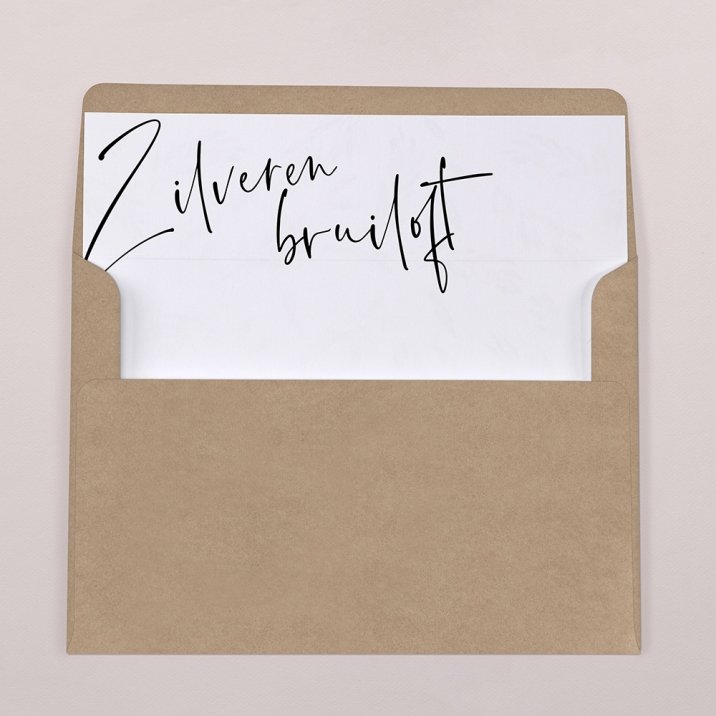 Zilveren
bruiloft